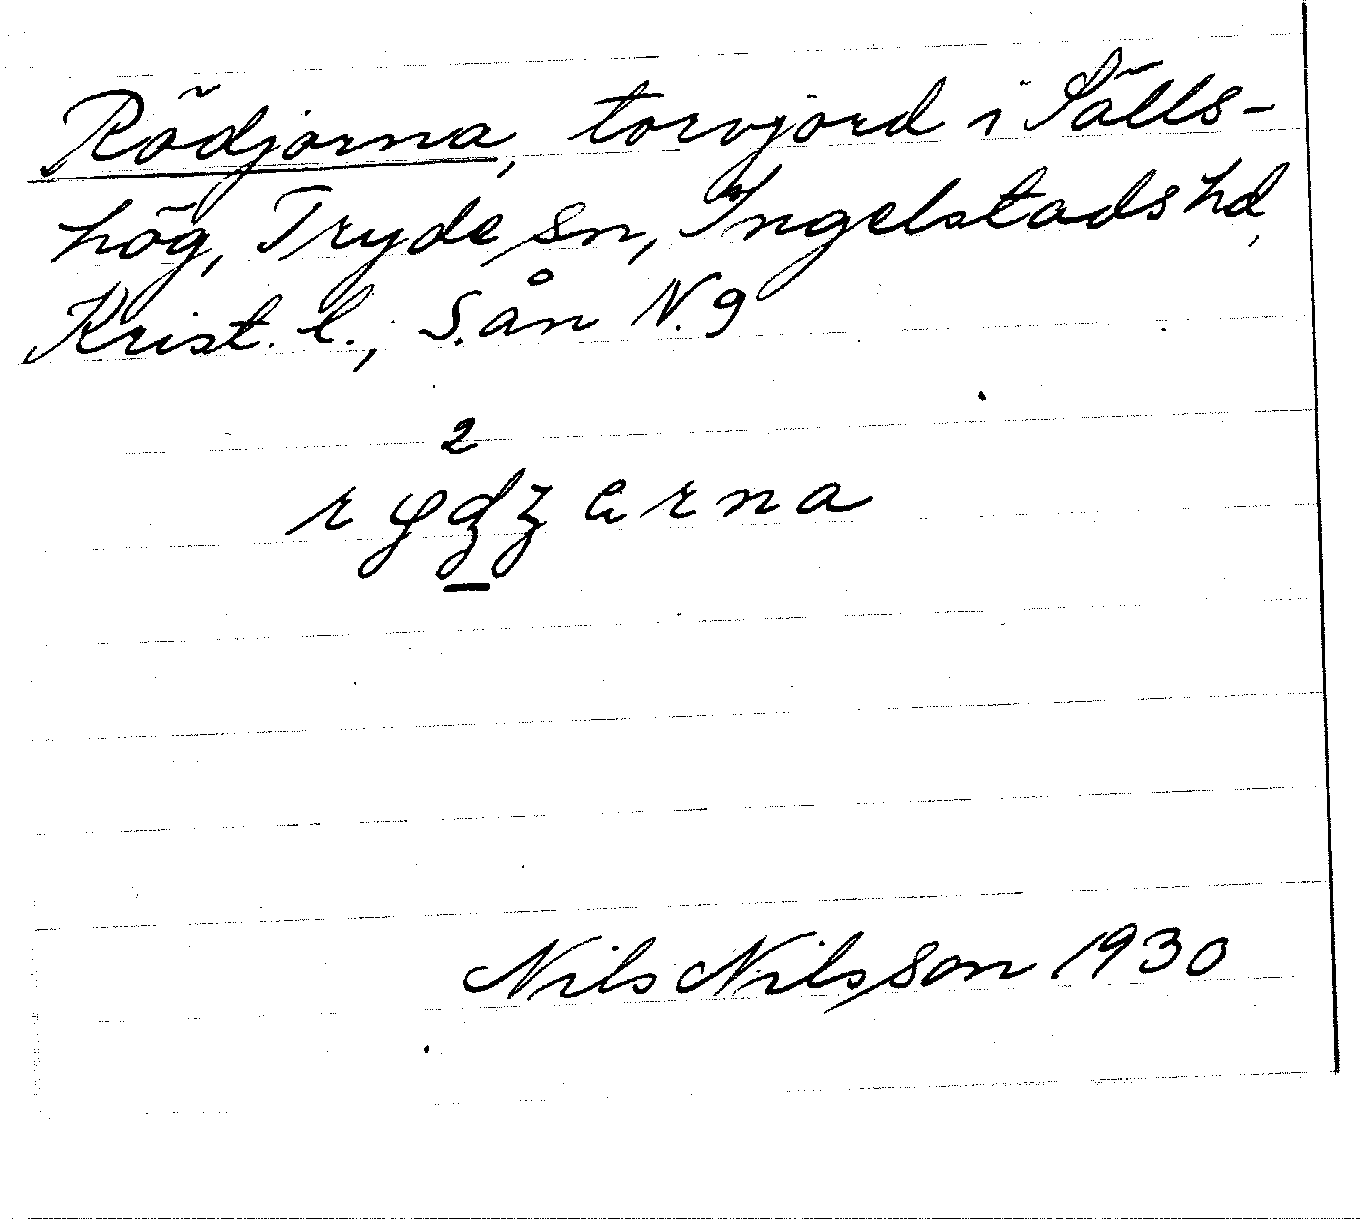 Rödjorna, torvjord i Sälls-
hög, Tryde sn, Ingelstads hd,
Krist. l., S.ån N.9
2
Nils Nilsson 1930